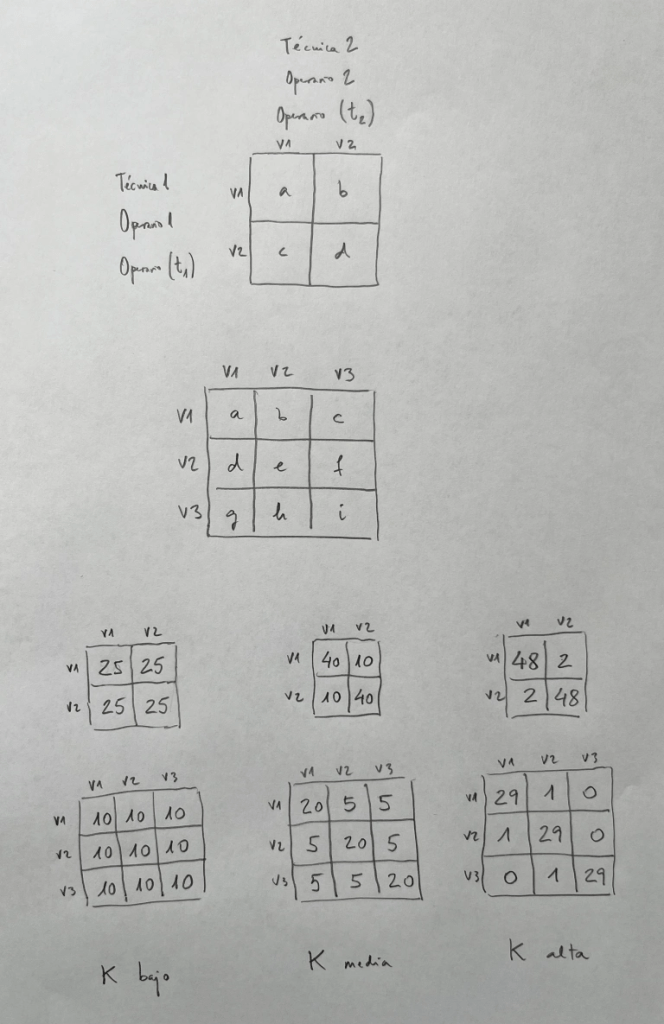 Técnica 2
Operario 2
Operario (t2)
V1 V2
Técnica 1
V1 a b
Operario 1
V2 c d
Operario (t1)
V1 V2 V3
V1 a b c
V2 d e f
V3 g h i
V1 V2
V1 25 25
V2 25 25
V1 V2
V1 40 10
V2 10 40
V1 V2
V1 48 2
V2 2 48
V1 V2 V3
V1 10 10 10
V2 10 10 10
V3 10 10 10
V1 V2 V3
V1 20 5 5
V2 5 20 5
V3 5 5 20
V1 V2 V3
V1 29 1 0
V2 1 29 0
V3 0 1 29
K bajo
K media
K alta